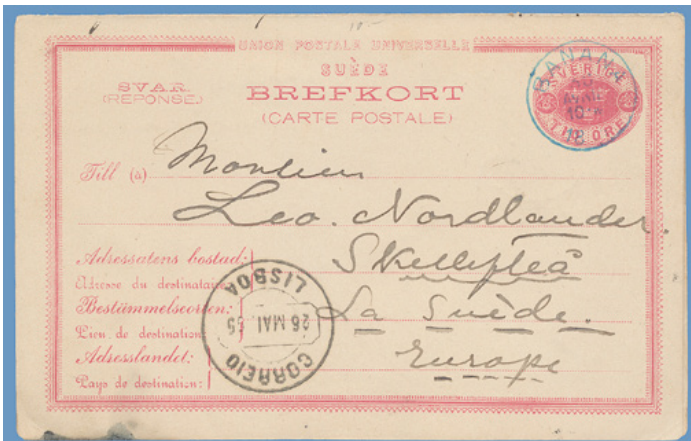 UNION POSTALE UNIVERSELLE
SUÈDE
SVAR
(RÉPONSE)
BREFKORT
(CARTE POSTALE)
SVERIGE
TIO ÖRE
Till (à)
Monsieur
Leo. Nordlander.
Adressatens bostad:
Adresse du destinataire
Skellefteå
Bestämmelseorten:
Lieu de destination
La Suède.
Adresslandet:
Pays de destination:
Europe
CORREIO
26 MAI
LISBOA